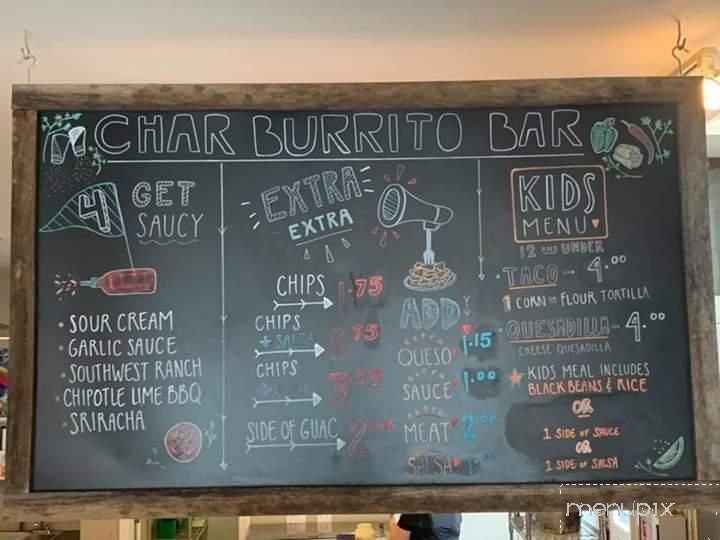 CHAR BURRITO BAR
4 GET
SAUCY
SOUR CREAM
GARLIC SAUCE
SOUTHWEST RANCH
CHIPOTLE LIME BBQ
SRIRACHA
EXTRA
EXTRA
CHIPS 1.75
CHIPS
+ SALSA 2.75
CHIPS
3.75
SIDE OF GUAC 2.00
ADD
QUESO 1.15
SAUCE 1.00
MEAT 2.00
SALSA
KIDS
MENU
12 AND UNDER
TACO 4.00
1 CORN OR FLOUR TORTILLA
QUESADILLA 4.00
CHEESE QUESADILLA
KIDS MEAL INCLUDES
BLACK BEANS & RICE
OR
1 SIDE OF SAUCE
OR
1 SIDE OF SALSA
menupix